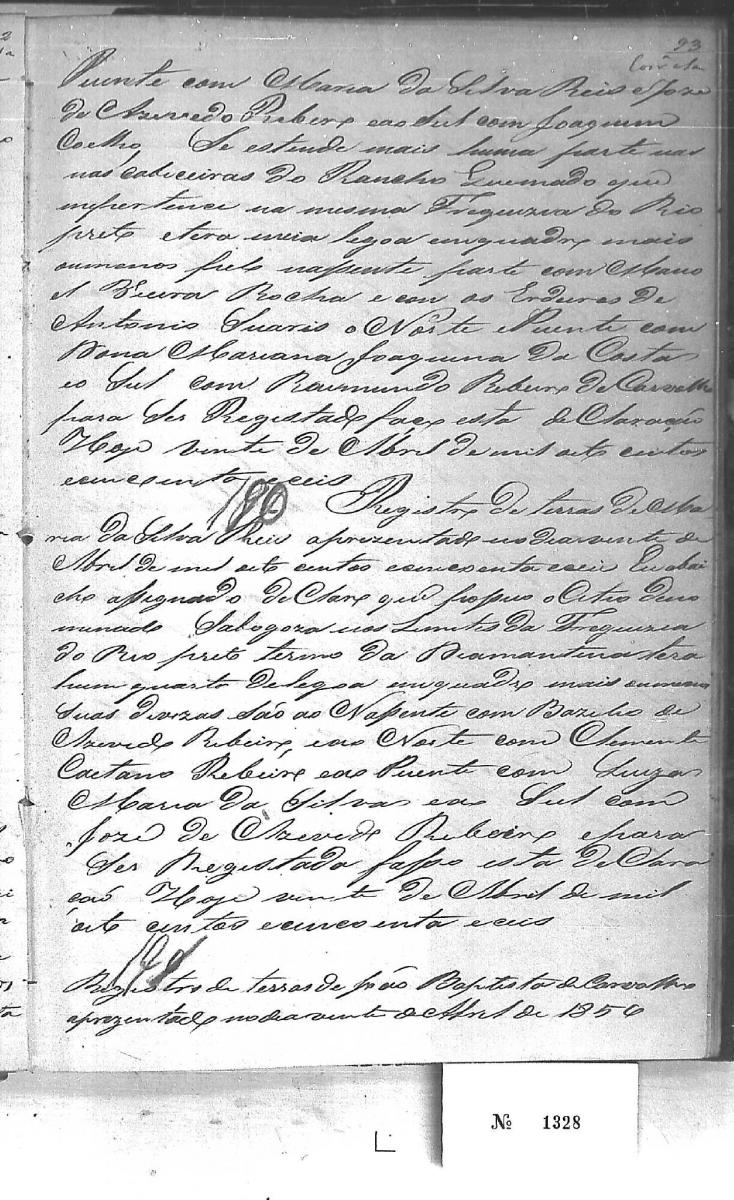 23
Puente com Maria da Silva Reis e Joze
de Azevedo Ribeiro eao Sul com Joaquim
Coelho, Se estende mais huma parte nas
nas cabiceiras do Rancho Queimado que
mepertence na mesma Freguizia do Rio
preto etera meia legoa emquadro mais
oumenos pelo nassente parte com Mano
el Vieira Rocha e con os Erdeiros de
Antonio Suaris o Norte ePuente com
Dona Mariana Joaquina da Costa
eo Sul com Raimundo Ribeiro de Carvalho
para Ser Registado faço esta de Claração
Hoje vinte de Abril de mil oito centos
cincoenta eceis
Registro de terras de Ma
ria da Silva Reis aprezentado nodia vinte de
Abril de mil oito centos cincoenta eceis Eu abai
cho assignado de Claro que possuo o Citio deno
minado Salogoza nos Limites da Freguizia
do Rio preto termo da Diamantina tera
hum quarto delegoa emquadro mais oumenos
Suas divizas são ao Nassente com Bazilio de
Azevedo Ribeiro, eao Norte com Clemente
Caetano Ribeiro eao Puente com Luiza
Maria da Silva eao Sul com
Joze de Azevedo Ribeiro epara
Ser Registada fasso esta de Clara
caõ Hoje vinte de Abril de mil
oito centos ecincoenta eceis
191
Registro de terras de João Baptista de Carvalho
aprezentado nodia vinte de Abril de 1856
Nº 1328